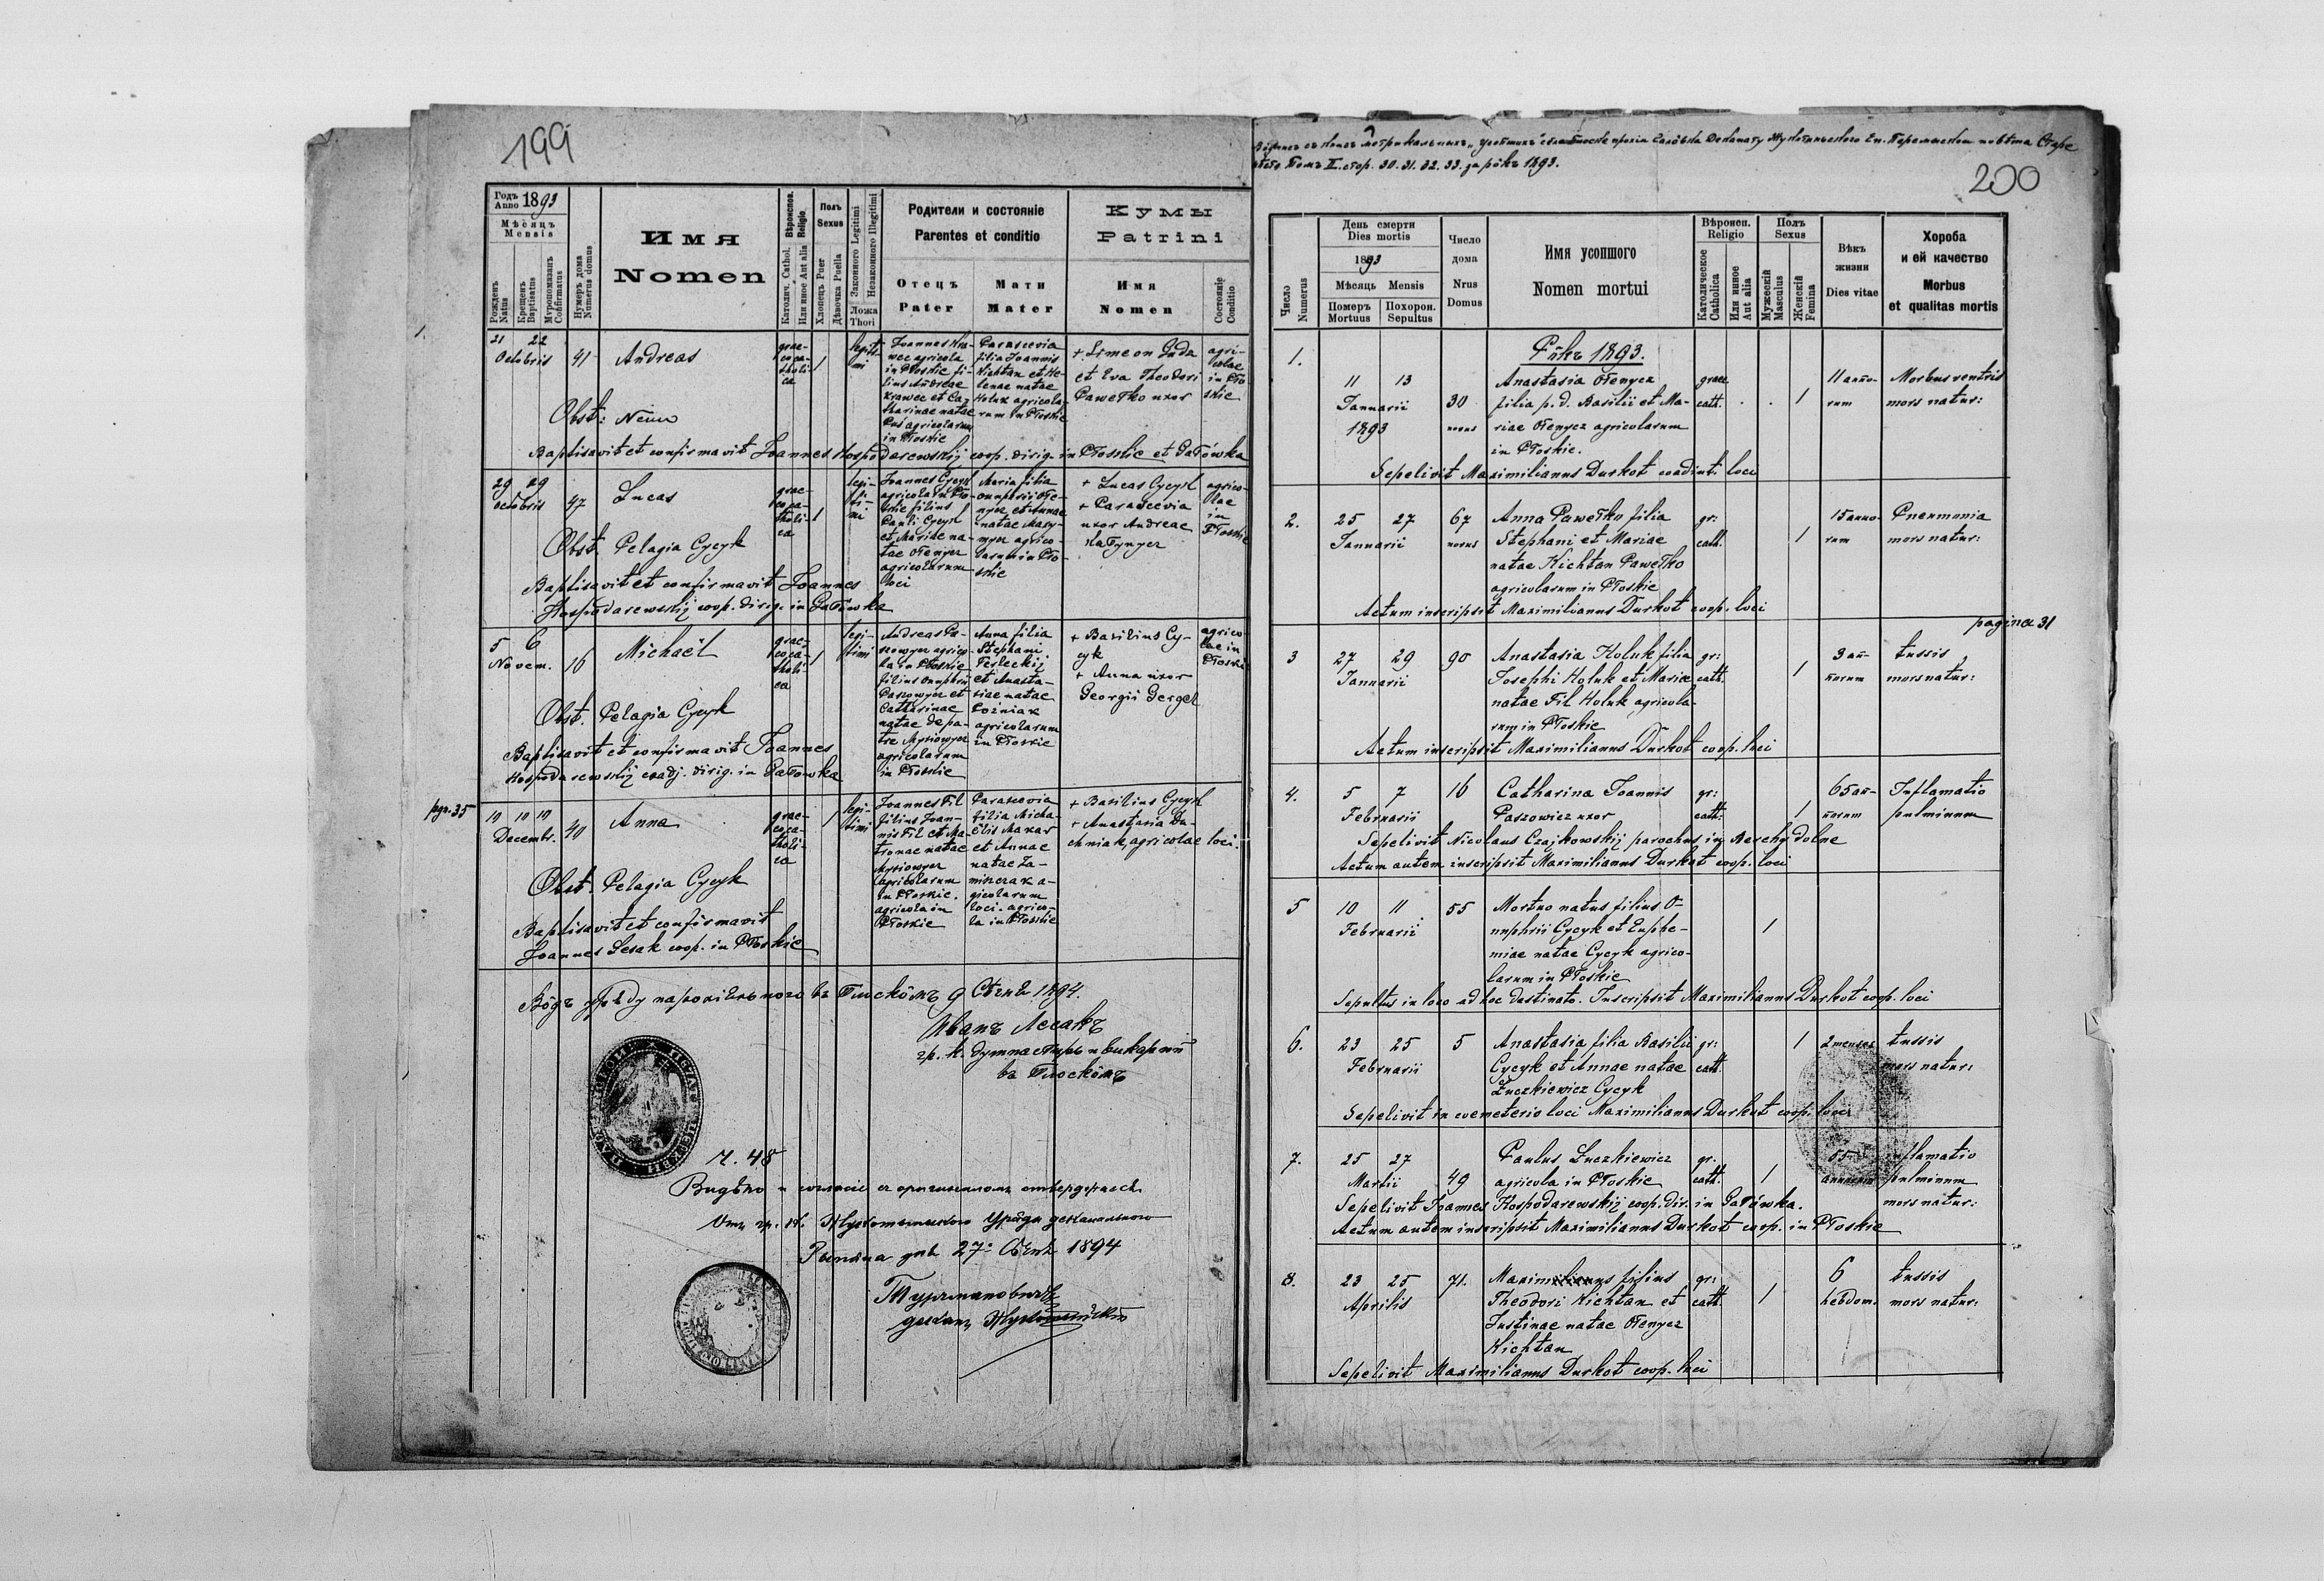 199
Годъ Anno 1893
Мѣсяцъ Mensis
Рожденъ Natus
Крещенъ Baptisatus
Муропомазанъ Confirmatus
Нумеръ дома Numerus domus
Имя
Nomen
Вѣроиспов. Religio
Католич. Cathol.
Или иное Aut alia
Полъ Sexus
Хлопецъ Puer
Дѣвочка Puella
Законного Legitimi
Незаконного Illegitimi
Ложа Thori
Родители и состояніе
Parentes et conditio
Отецъ Pater
Мати Mater
Кумы
Patrini
Имя Nomen
Состояніе Conditio
21 22
Octobris 41 Andreas
graeco catholica
1
legitimi
Joannes Krawec agricola in Płoskie filius Andreae Krawec et Catharinae natae Pus agricolarum in Płoskie
Parascevia filia Joannis Kichtan et Helenae natae Hołuk agricolarum in Płoskie
+ Simeon Huda
et Eva Theodori
Pawełko uxor
agricolae in Płoskie
Obst: Nemo
Baptisavit et confirmavit Joannes Hospodarewskij coop. dirig. in Płoskie et Gałówka
29 29
Octobris 47 Lucas
graeco catholica
1
legitimi
Joannes Cycyk agricola in Płoskie filius Pauli Cycyk et Mariae natae Ołenycz agricolarum loci
Maria filia Onuphrii Ołenycz et Annae natae agricolarum in Płoskie
+ Lucas Cycyk
+ Parascevia
uxor Andreae
agricolae in Płoskie
Obst. Pelagia Cycyk
Baptisavit et confirmavit Joannes
Hospodarewskij coop. dirig. in Gałówka
5 6
Novem. 16 Michaël
graeco catholica
1
legitimi
Andreas Paszowycz agricola in Płoskie filius Onuphrii Paszowycz et Catharinae natae de patre Mysiowycz agricolarum in Płoskie
Anna filia Stephani Terleckij et Anastasiae natae Woźniak agricolarum in Płoskie
+ Basilius Cycyk
+ Anna uxor
Georgii Gergel
agricolae in Płoskie
Obst. Pelagia Cycyk
Baptisavit et confirmavit Joannes
Hospodarewskij coadj. dirig. in Gałówka
pag. 35
10 10 10
Decembr. 40 Anna
graeco catholica
1
legitimi
Joannes Fil filius Joannis Fil et Matronae natae Mysiowycz agricolarum in Płoskie. agricola in Płoskie
Parascevia filia Michaëlis Makar et Annae natae agricolarum loci. agricola in Płoskie
+ Basilius Cycyk
+ Anastasia Duchniak, agricolae loci.
Obst. Pelagia Cycyk
Baptisavit et confirmavit
Joannes Lesak coop. in Płoskie
Вôдъ уряду парохіяльного въ Плоскôмъ 9 Сѣчня 1894.
Иванъ Лесакъ
гр. к. душпастырь и викарый
въ Плоскôмъ
Ч. 48
Видѣно и согласіе съ оригиналомъ
Отъ гр. к. Жукотинского Уряду деканального
дня 27. Сѣчня 1894
200
Том II. стор. 30. 31. 32. 33. за рôкъ 1893.
Число Numerus
День смерти
Dies mortis
1893
Мѣсяць Mensis
Померъ Mortuus
Похорон. Sepultus
Число дома
Nrus Domus
Имя усопшого
Nomen mortui
Вѣроисп. Religio
Католическое Catholica
Или инное Aut alia
Полъ Sexus
Мужескій Masculus
Женскій Femina
Вѣкъ жизни
Dies vitae
Хороба
и ей качество
Morbus
et qualitas mortis
Рôкъ 1893.
1. 11 13 Januarii 1893 30 novus
Anastasia Ołenycz
filia p. d. Basilii et Ma-
riae Ołenycz agricolarum
in Płoskie.
graec. cath. . . 1
11 anno-rum
Morbus ventris
mors natur:
Sepelivit Maximilianus Durkot coadiut. loci
2. 25 27 Januarii 67 novus
Anna Pawełko filia
Stephani et Mariae
natae Kichtan Pawełko
agricolarum in Płoskie
gr: cath. 1
15 anno-rum
Pneumonia
mors natur:
Actum inscripsit Maximilianus Durkot coop. loci
pagina 31
3 27 29 Januarii 90
Anastasia Hołuk filia
Josephi Hołuk et Mariae
natae Fil Hołuk agricola-
rum in Płoskie
gr: cath. 1
3 an-norum
tussis
mors natur:
Actum inscripsit Maximilianus Durkot coop. loci
4. 5 7 Februarii 16
Catharina Joannis
Paszowicz uxor
gr: cath. 1
65 an-norum
Inflamatio
pulminum
Sepelivit Nicolaus Czajkowskij parochus in Berehy dolne
Actum autem inscripsit Maximilianus Durkot coop. loci
5 10 11 Februarii 55
Mortuo natus filius O-
nuphrii Cycyk et Euphe-
miae natae Cycyk agrico-
larum in Płoskie
1
Sepultus in loco ad hoc destinato. Inscripsit Maximilianus Durkot coop. loci
6. 23 25 Februarii 5
Anastasia filia Basilii
Cycyk et Annae natae
Łuczkiewicz Cycyk
gr: cath. 1
2 menses
tussis
mors natur:
Sepelivit in coemeterio loci Maximilianus Durkot coop. loci
7. 25 27 Martii 49
Paulus Łuczkiewicz
agricola in Płoskie
gr. cath. 1
55 annorum
inflamatio
pulminum
mors natur:
Sepelivit Joannes Hospodarewskij coop. dir. in Gałówka.
Actum autem inscripsit Maximilianus Durkot coop. in Płoskie
8. 23 25 Aprilis 71.
Maximilianus filius
Theodori Kichtan et
Justinae natae Ołenycz
Kichtan
gr: cath. 1
6 hebdom.
tussis
mors natur:
Sepelivit Maximilianus Durkot coop. loci